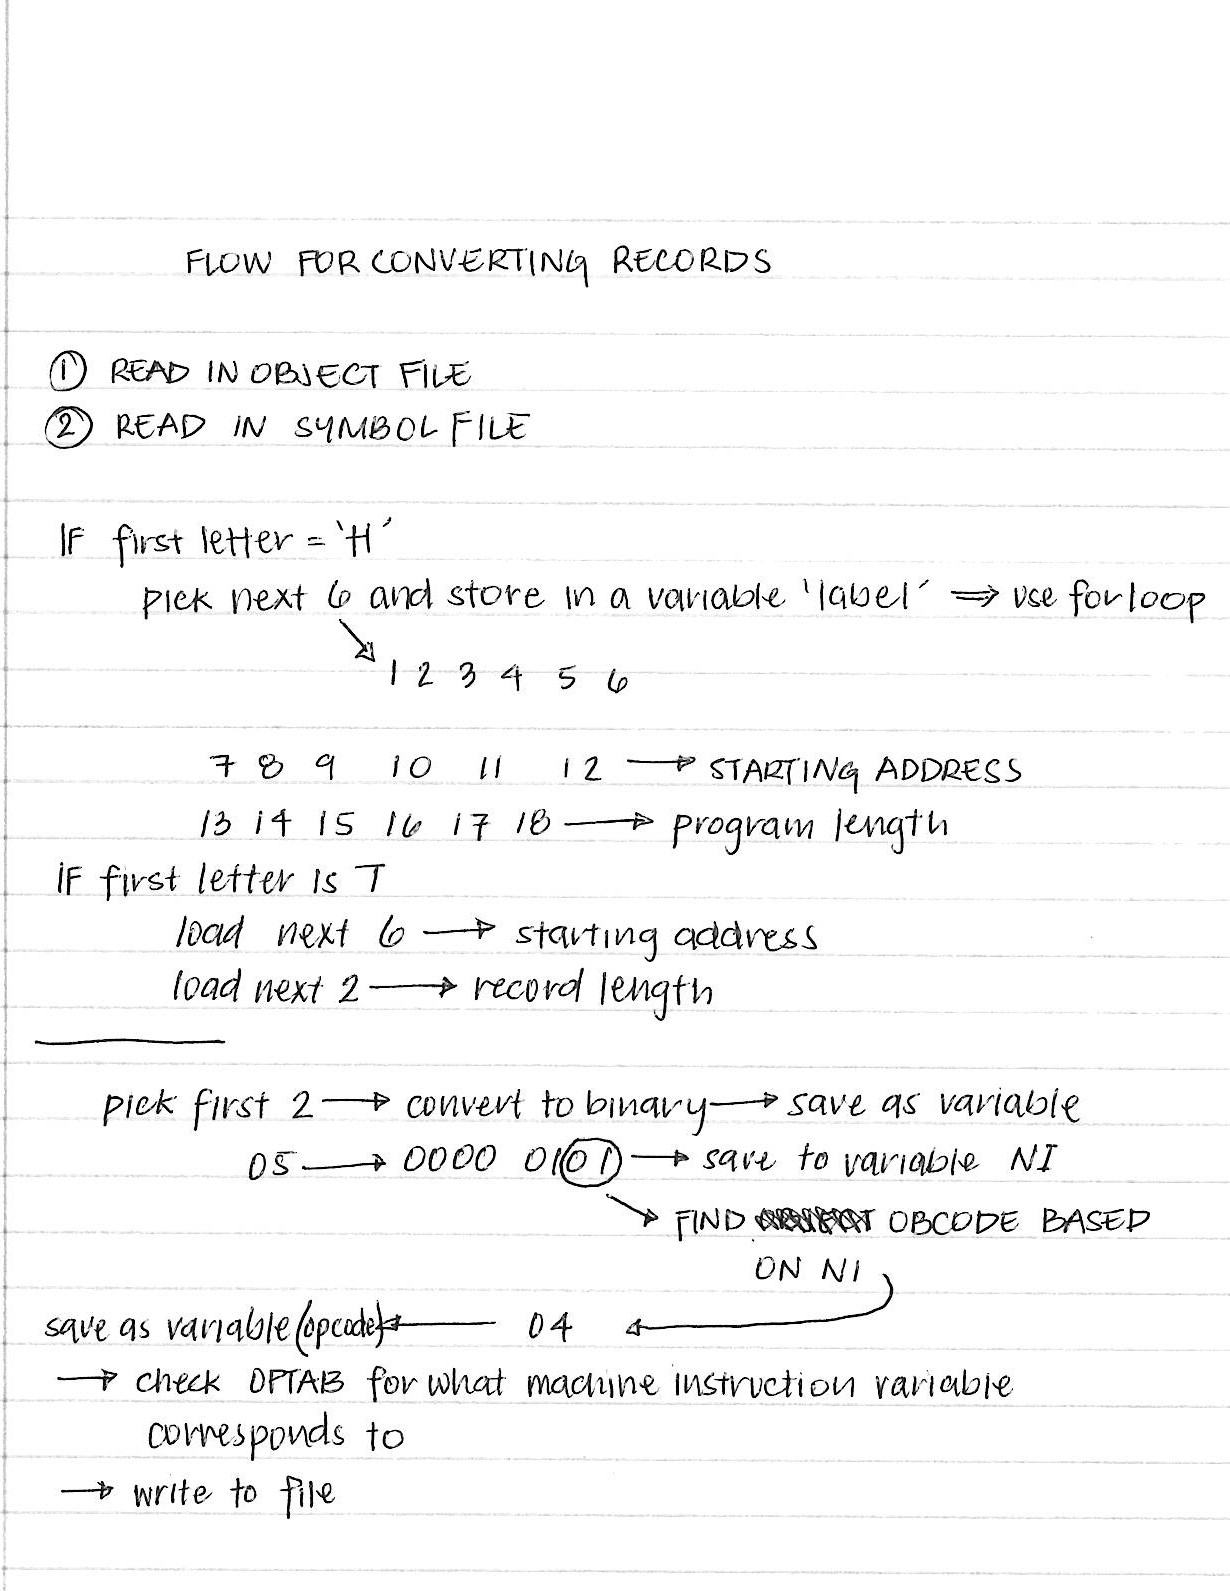 FLOW FOR CONVERTING RECORDS
① READ IN OBJECT FILE
② READ IN SYMBOL FILE
IF first letter = 'H'
pick next 6 and store in a variable 'label' ⇒ use for loop
↘
1 2 3 4 5 6
7 8 9 10 11 12 → STARTING ADDRESS
13 14 15 16 17 18 → program length
IF first letter is T
load next 6 → starting address
load next 2 → record length
pick first 2 → convert to binary → save as variable
05 → 0000 0101 → save to variable NI
↘ FIND OBCODE BASED
ON NI
save as variable (opcode) ← 04 ←
→ check OPTAB for what machine instruction variable
corresponds to
→ write to file